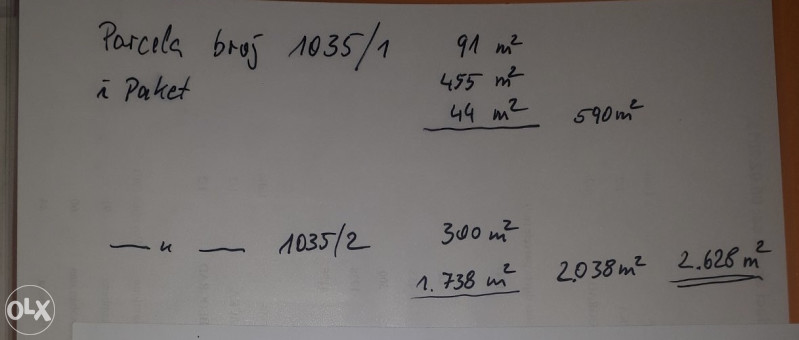 Parcela broj 1035/1 91 m²
i Paket 455 m²
44 m² 590 m²
— " — 1035/2 300 m²
1.738 m² 2.038 m² 2.628 m²
OLX